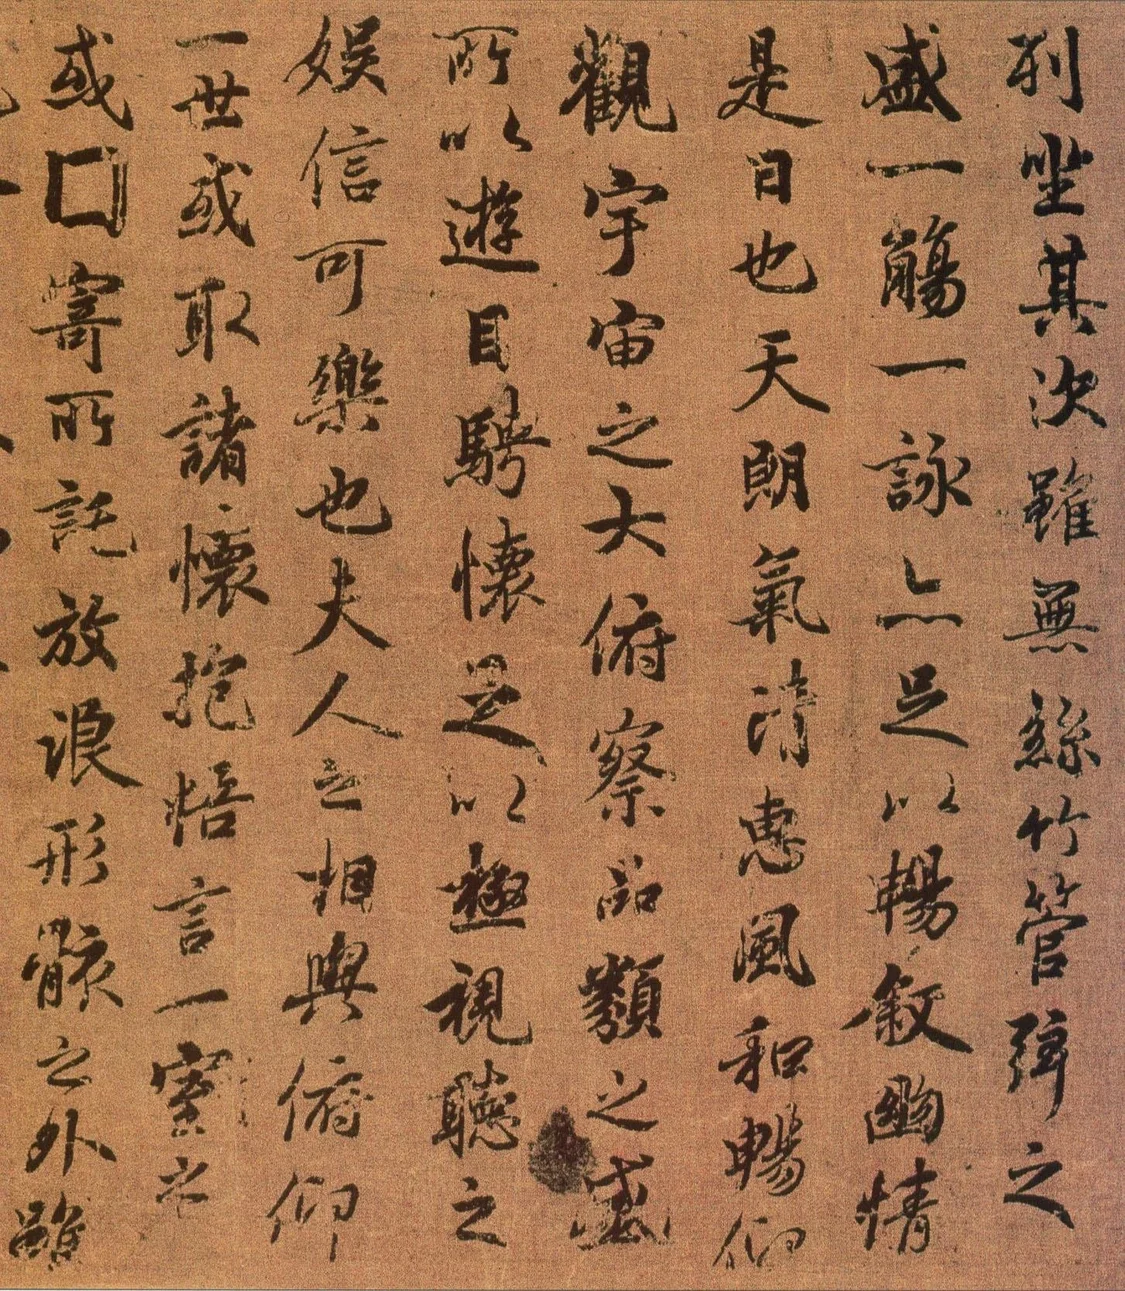 列坐其次雖無絲竹管弦之
盛一觴一詠亦足以暢敘幽情
是日也天朗氣清惠風和暢仰
觀宇宙之大俯察品類之盛
所以遊目騁懷足以極視聽之
娛信可樂也夫人之相與俯仰
一世或取諸懷抱悟言一室之
或囗寄所託放浪形骸之外雖